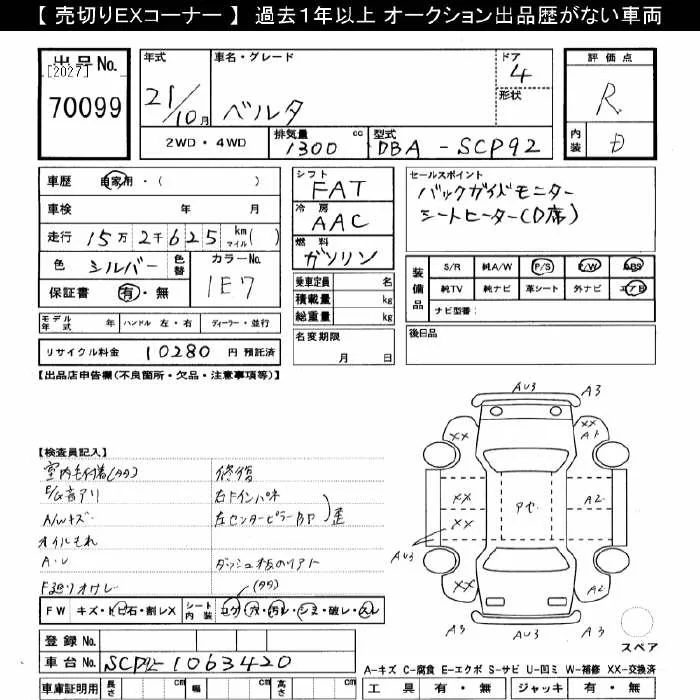 【 売切りEXコーナー 】 過去1年以上 オークション出品歴がない車両
出品No.
[2027]
70099
年式
21/10月
車名・グレード
ベルタ
ドア
4
形状
評価点
R
内装
D
2WD・4WD
排気量
1300 cc
型式
DBA-SCP92
車歴 自家用・( )
車検 年 月
走行 15万2千625 km マイル( )
色 シルバー 色替 カラーNo.
1E7
保証書 有・無
シフト
FAT
冷房
AAC
燃料
ガソリン
乗車定員 名
積載量 kg
総重量 kg
セールスポイント
バックガイドモニター
シートヒーター(D席)
装備品
S/R 純A/W P/S P/W ABS
純TV 純ナビ 革シート 外ナビ エアB
ナビ型番:
モデル年式 年 ハンドル 左・右 ディーラー・並行
名変期限
月 日
後日品
リサイクル料金 10280 円 預託済
【出品店申告欄(不良箇所・欠品・注意事項等)】
【検査員記入】
室内毛付着(タタ) 修復
E/G音アリ 右Fインパネ
A/Wキズ 左センターピラーBP 歪
オイルもれ
A・U
(タタ)
FW キズ・ト石・割レX シート内装 コゲ・穴・汚レ・シミ・破レ・スレ
登録No.
車台No. SCP92-1063420
車庫証明用 長さ cm 幅 cm 高さ cm
AU3 A3
XX
XX
A1
XX
XX
A2
AU3
XX
A2
A3
AU3
A3
スペア
A-キズ C-腐食 E-エクボ S-サビ U-凹ミ W-補修 XX-交換済
工具 有・無 ジャッキ 有・無